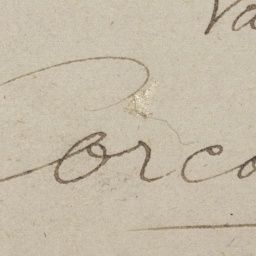 Va
Corco